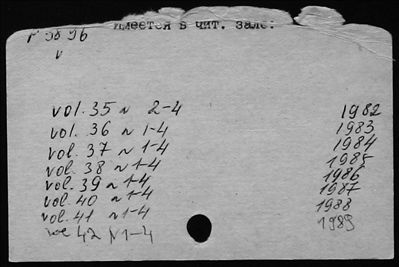 имеется в чит. зале:
г 9896
v
vol. 35 N 2-4 1982
vol. 36 N 1-4 1983
vol. 37 N 1-4 1984
vol. 38 N 1-4 1985
vol. 39 N 1-4 1986
vol. 40 N 1-4 1987
vol. 41 N 1-4 1988
vol 42 N 1-4 1989